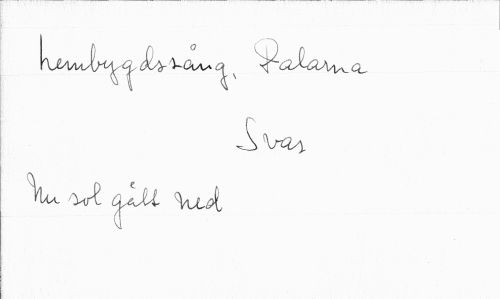 hembygdssång, Dalarna
Svas
Nu sol gått ned